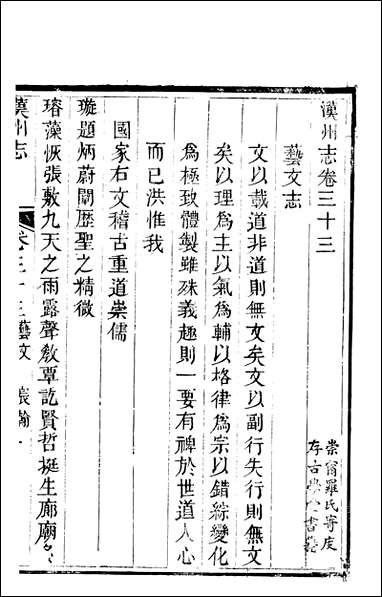 漢州志卷三十三
藝文志
文以載道非道則無文矣文以副行失行則無文
矣以理為主以氣為輔以格律為宗以錯綜變化
為極致體製雖殊義趣則一要有裨於世道人心
而已洪惟我
國家右文稽古重道崇儒
璇題炳蔚闡歷聖之精微
瑢藻恢張敷九天之雨露聲敎覃訖賢哲挺生廊廟
漢州志
卷三十三藝文